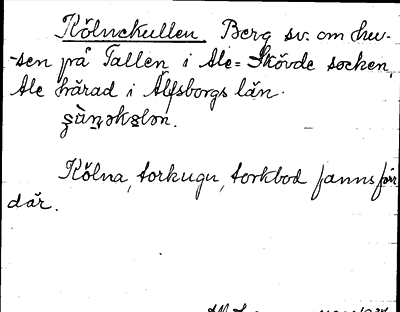 Kölnekullen. Berg sv. om hu-
-sen på Tallen i Ale=Skövde socken,
Ale härad i Älfsborgs län.
Kölna, torkugn, torkbod fanns förr
där.